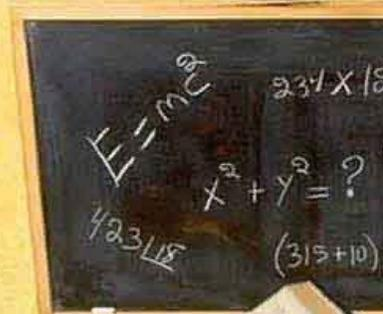 E=m²
234 X 18
x² + y² = ?
423 ⌊18
(315+10)